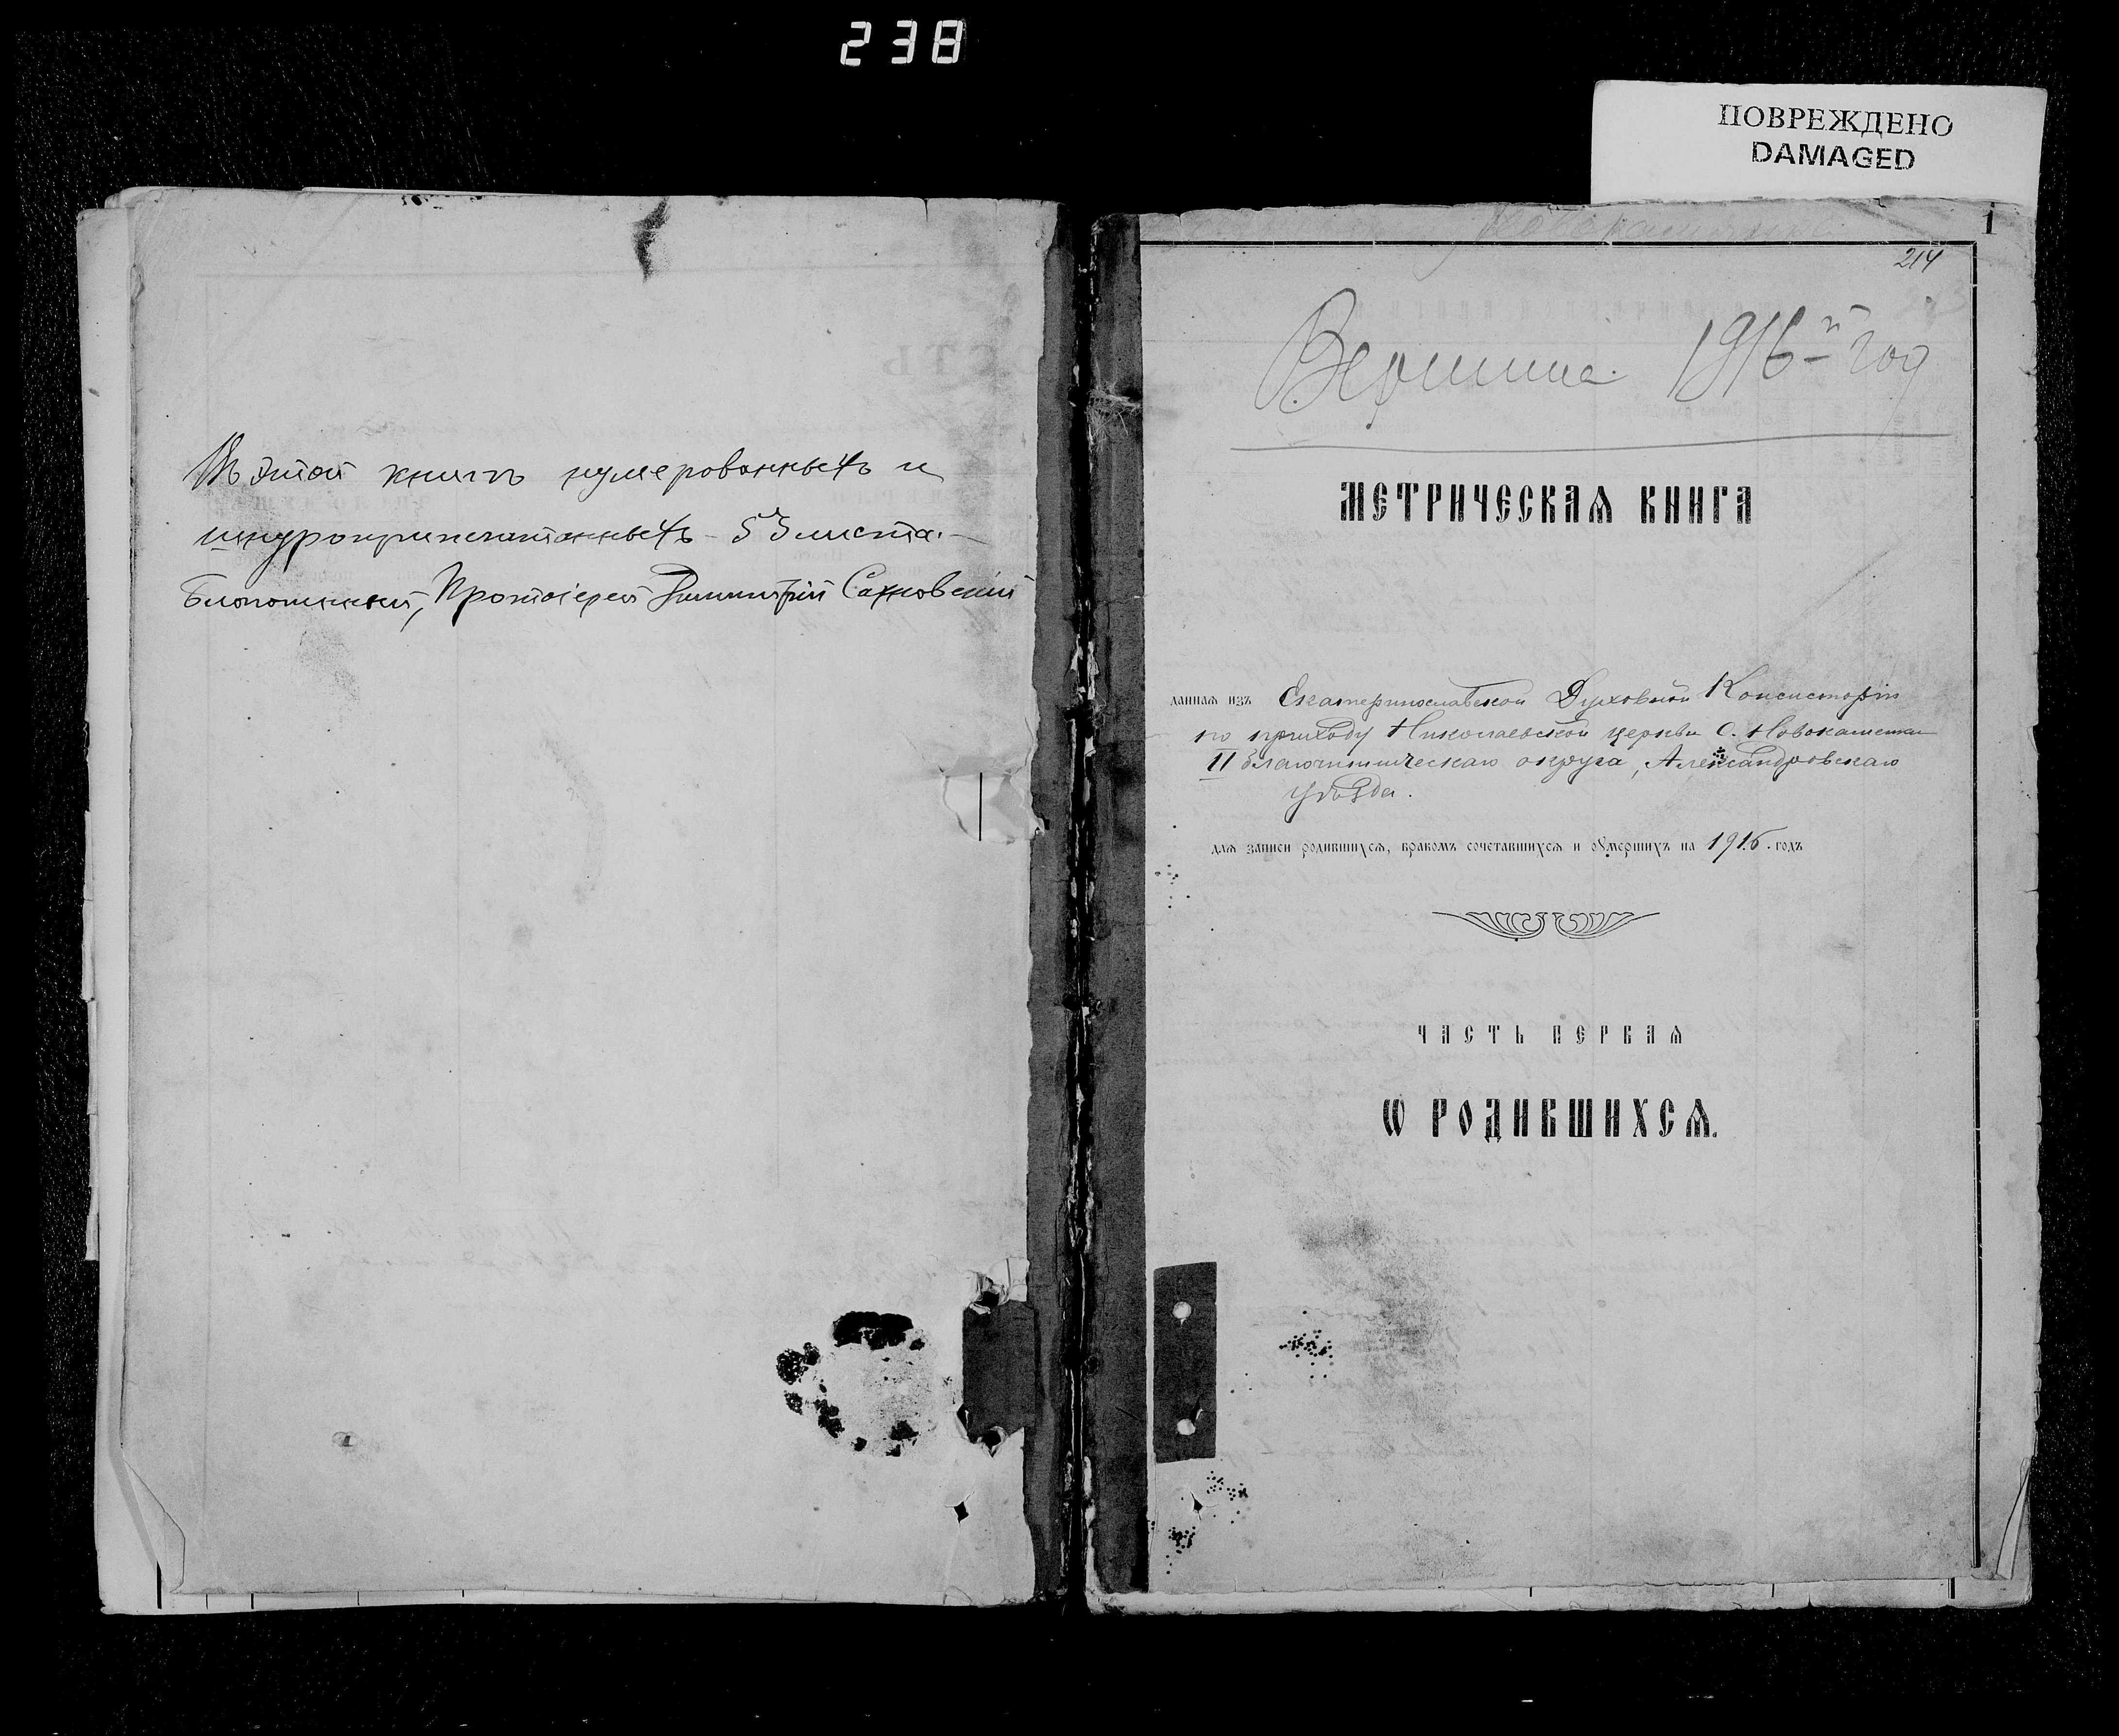 238
ПОВРЕЖДЕНО
DAMAGED
Въ этой книгѣ нумерованныхъ и
шнуроприпечатанныхъ - 53 листа.
Благочинный, Протоіерей Димитрій Сахновскій
1
214
1916й год
МЕТРИЧЕСКАѦ КНИГА
даннаѧ изъ Екатеринославской Духовной Консисторіи
по приходу Николаевской церкви с. Новокаменки
II благочинническаго округа, Александровскаго
уѣзда.
длѧ записи родившихсѧ, бракомъ сочетавшихсѧ и ѹмершихъ на 1916. годъ
ЧАСТЬ ПЕРВАѦ
Ѡ РОДИВШИХСѦ.